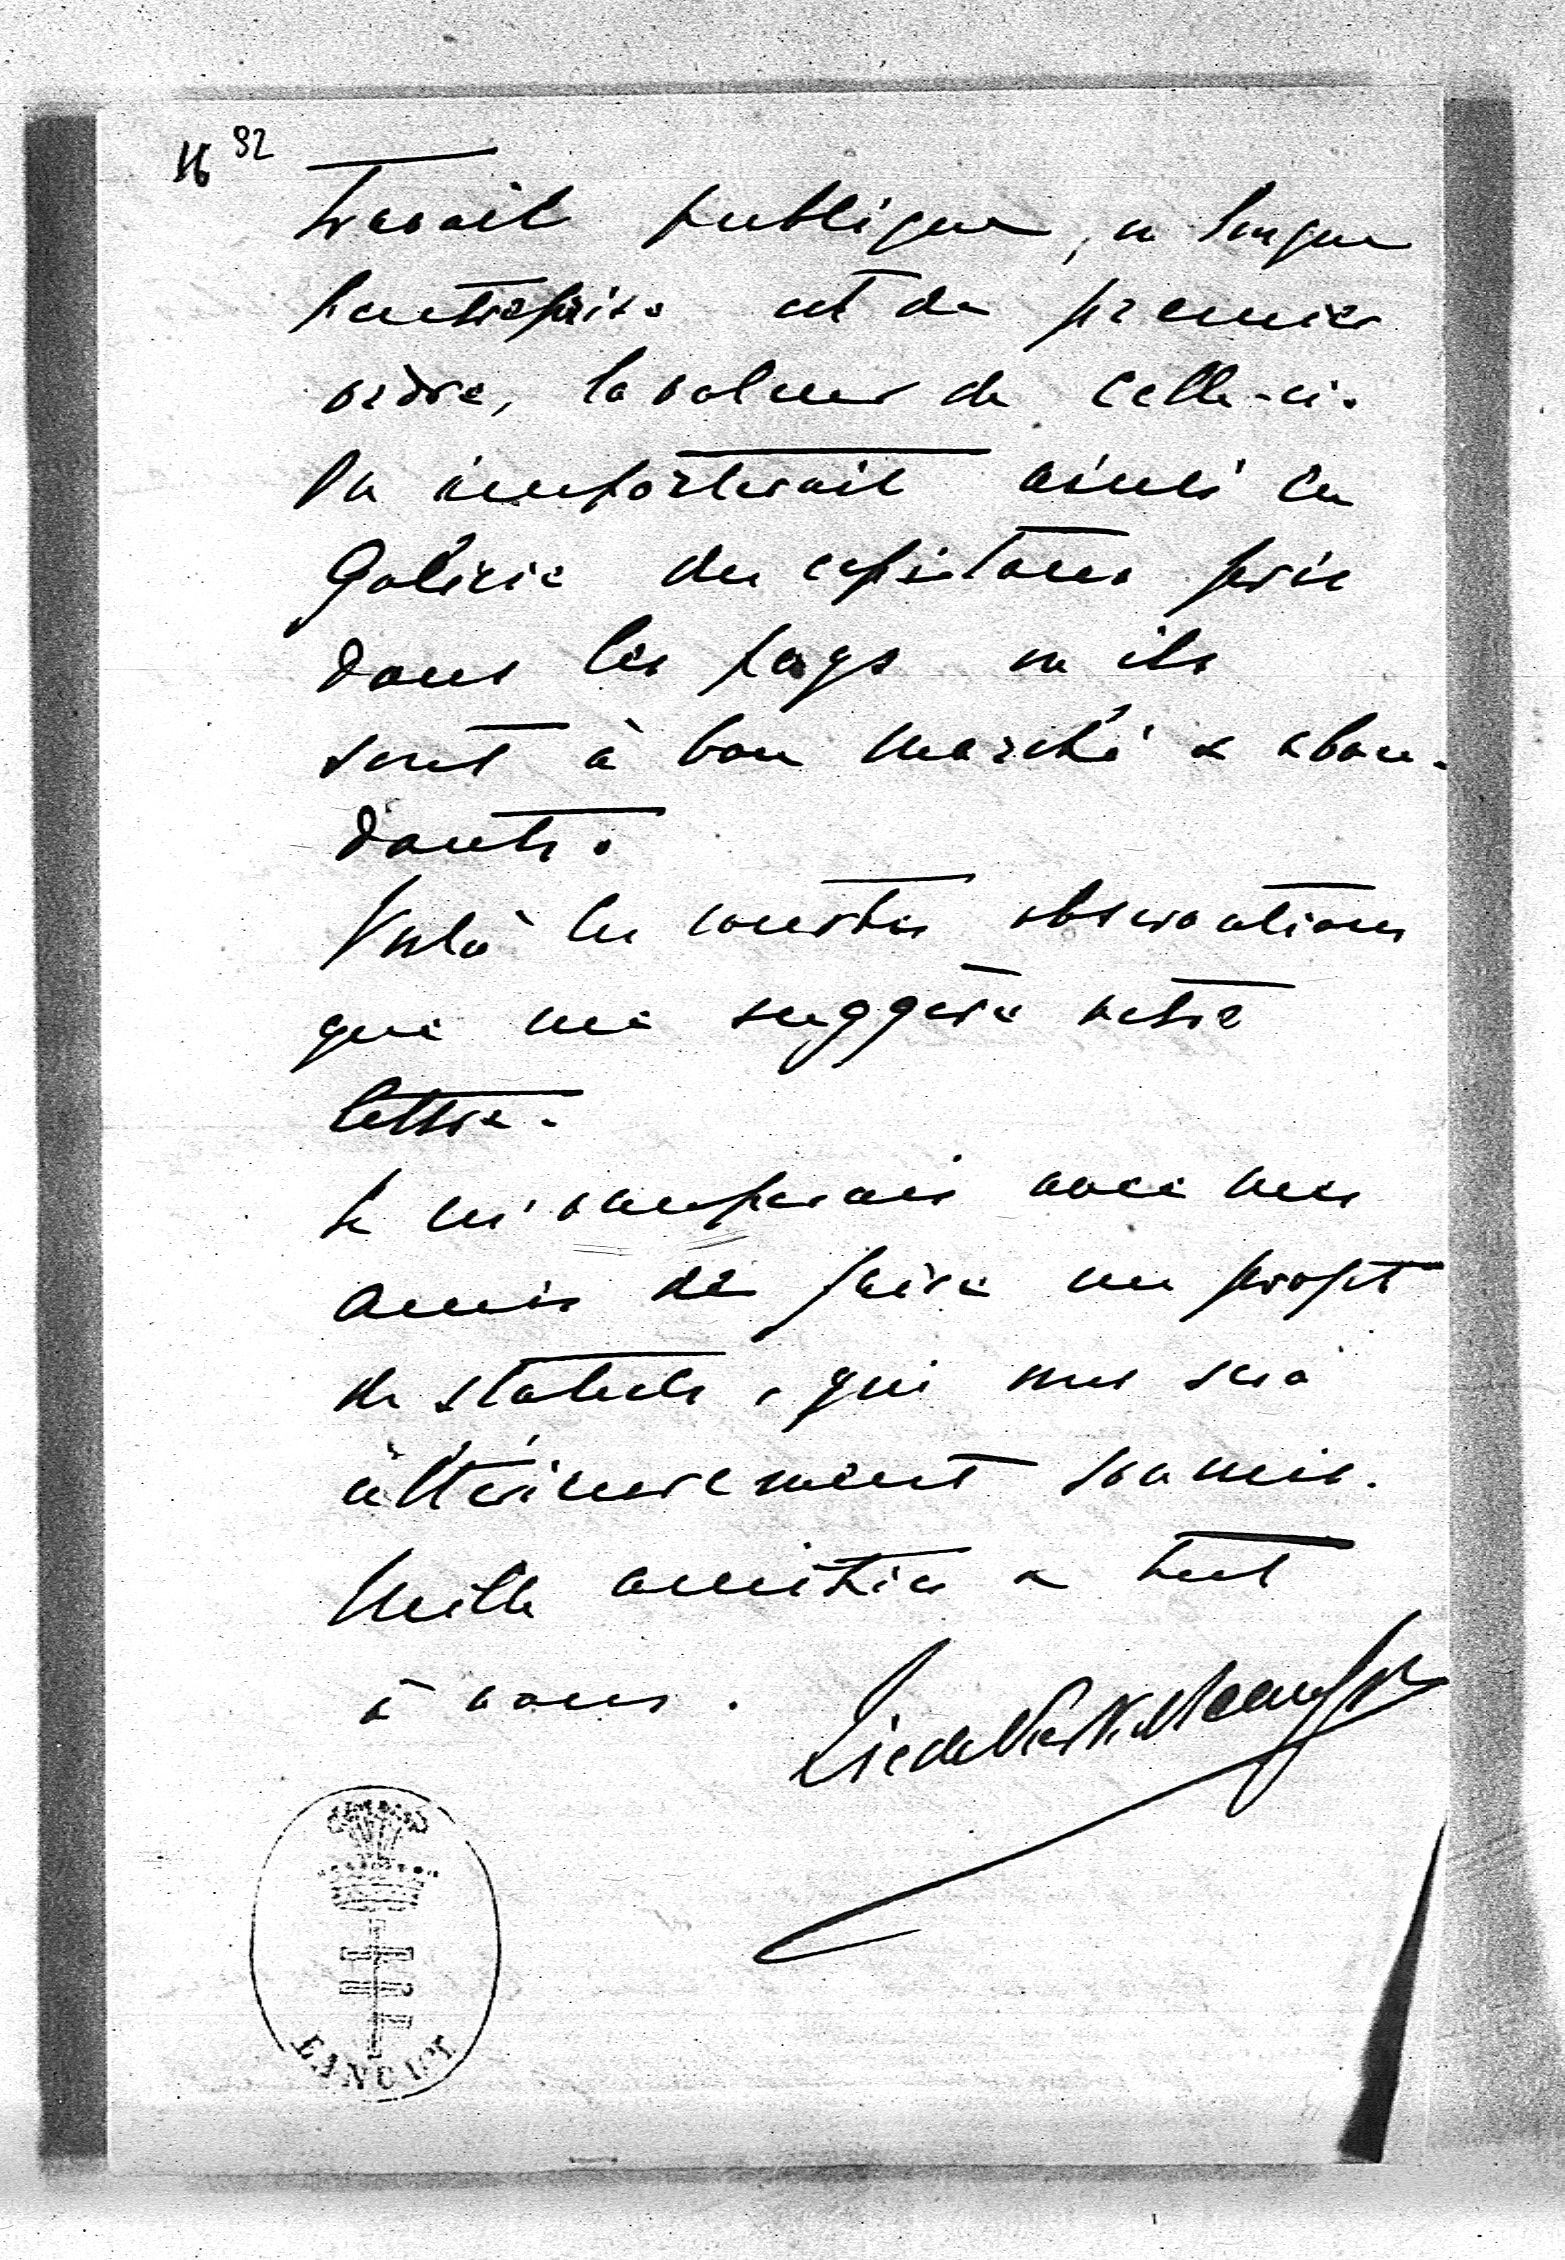 16 92
travail publique, ou lorsque
l'entreprise est de premier
ordre, la valeur de celle-ci.
On importerait ainsi en
Galicie des capitaux pris
dans les pays ou ils
sont à bon marché & abon-
dants.
Voilà les courtes observations
que me suggère votre
lettre.
Je m'occuperais avec mes
amis de faire un projet
de statuts, qui vous sera
ultérieurement soumis.
Mille amitiés & tout
à vous.
ŁAŃCUT